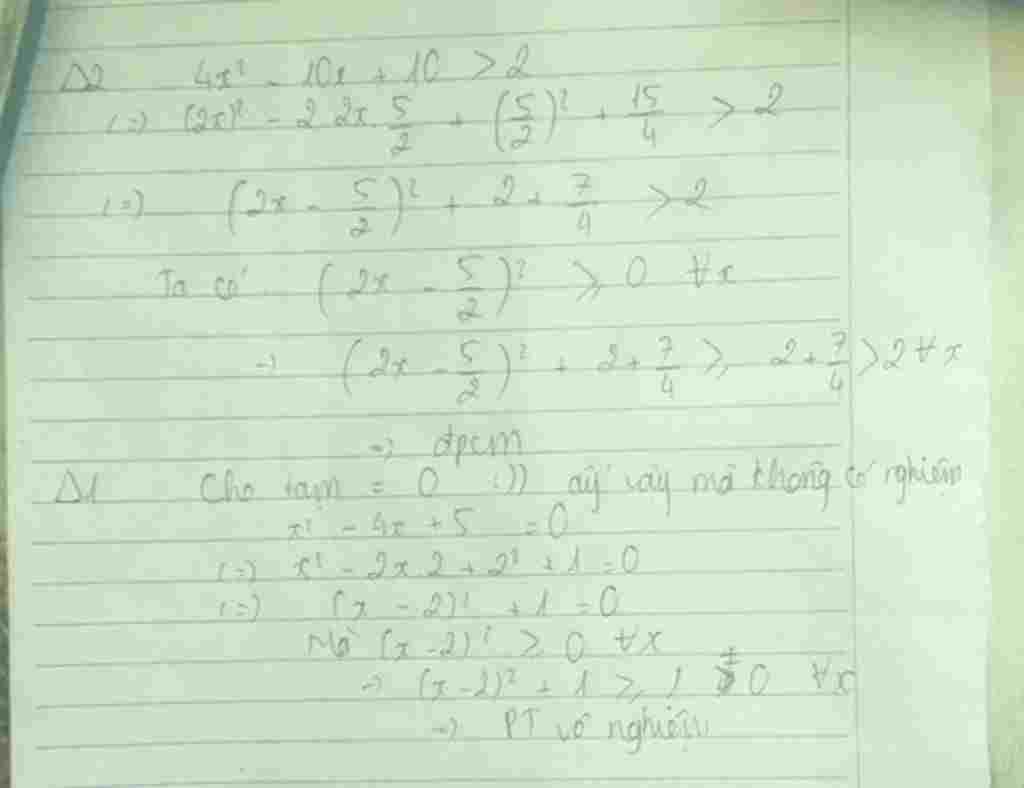 Δ2 4x² - 10x + 10 > 2
(=) (2x)² - 2 2x 5/2 + (5/2)² + 15/4 > 2
(=) (2x - 5/2)² + 2 + 7/4 > 2
Ta có (2x - 5/2)² ≥ 0 ∀x
=) (2x - 5/2)² + 2 + 7/4 ≥ 2 + 7/4 > 2 ∀x
=) đpcm
Δ1 Cho tạm = 0 :)) ấy vậy mà không có nghiệm
x² - 4x + 5 = 0
(=) x² - 2x 2 + 2² + 1 = 0
(=) (x - 2)² + 1 = 0
Mà (x - 2)² ≥ 0 ∀x
=) (x - 2)² + 1 ≥ 1 ≠ 0 ∀x
=) PT vô nghiệm